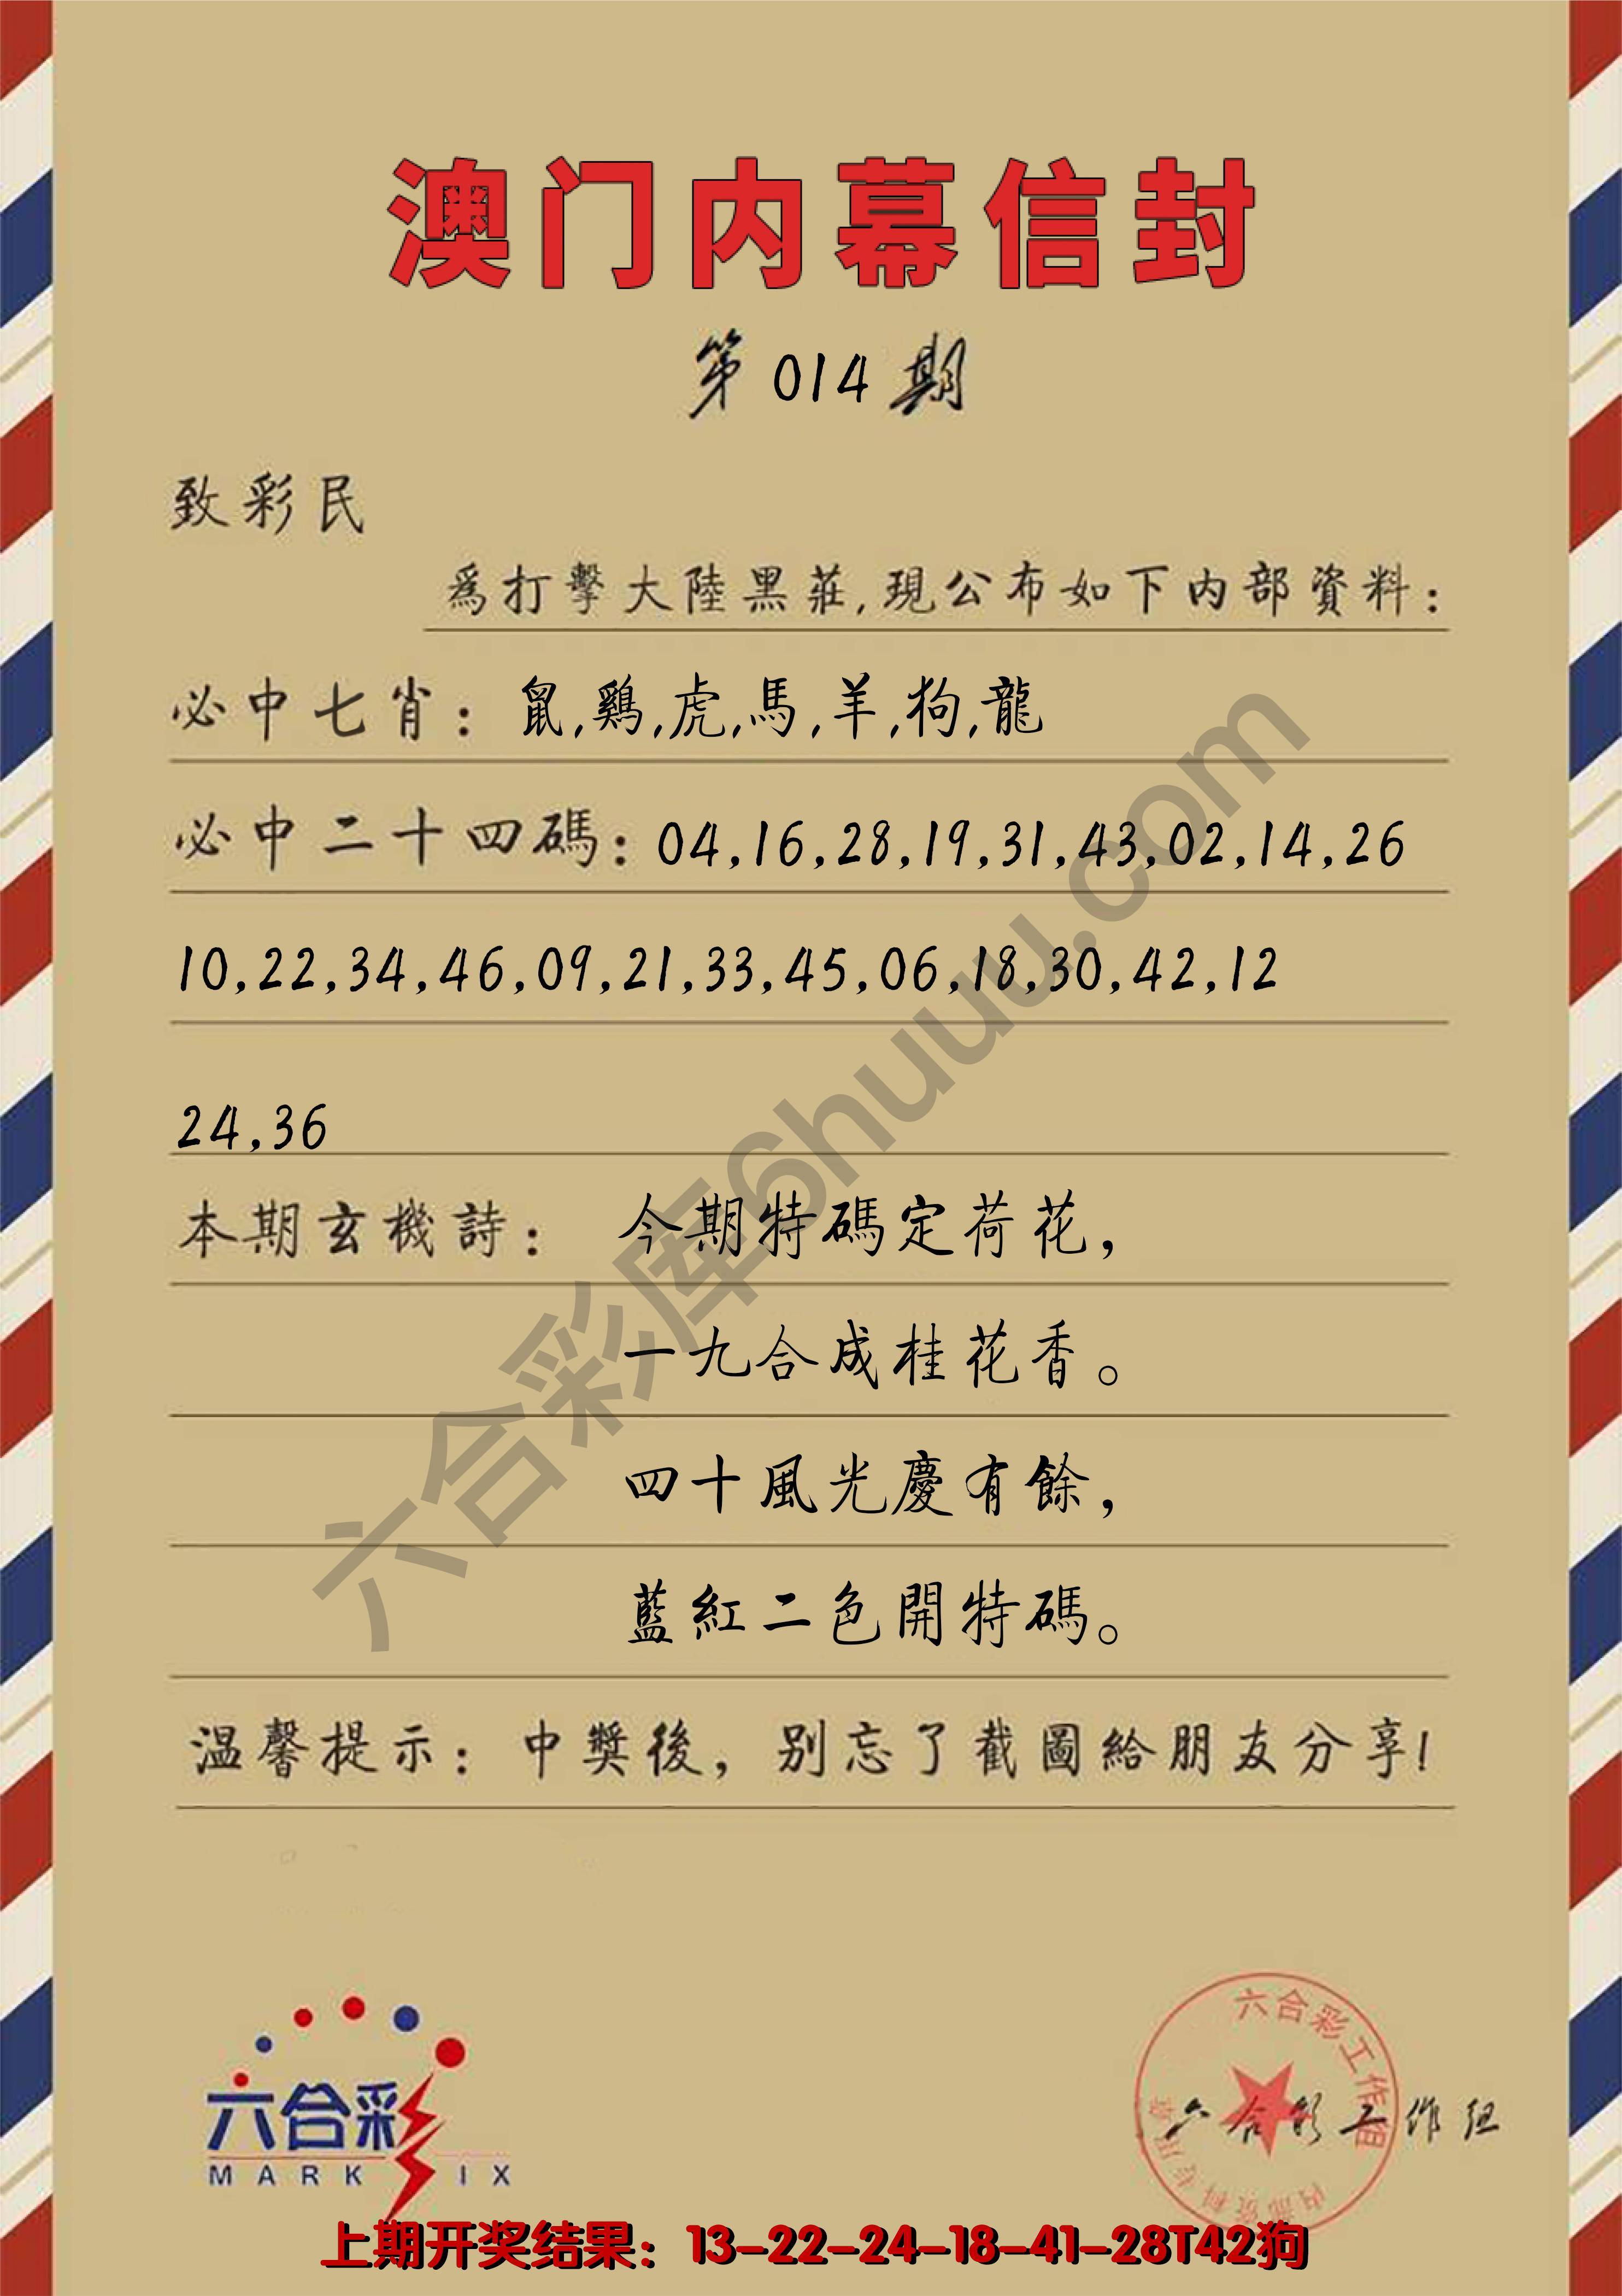 澳门内幕信封
第014期
致彩民
爲打擊大陸黑莊,現公布如下内部資料:
必中七肖: 鼠,鷄,虎,馬,羊,狗,龍
必中二十四碼: 04,16,28,19,31,43,02,14,26
10,22,34,46,09,21,33,45,06,18,30,42,12
24,36
本期玄機詩: 今期特碼定荷花,
一九合成桂花香。
四十風光慶有餘,
藍紅二色開特碼。
温馨提示: 中獎後, 别忘了截圖給朋友分享!
六合彩库6huuu.com
六合彩
MARK IX
六合彩工作组
内部资料专用章
六合彩工作组
上期开奖结果: 13-22-24-18-41-28T42狗